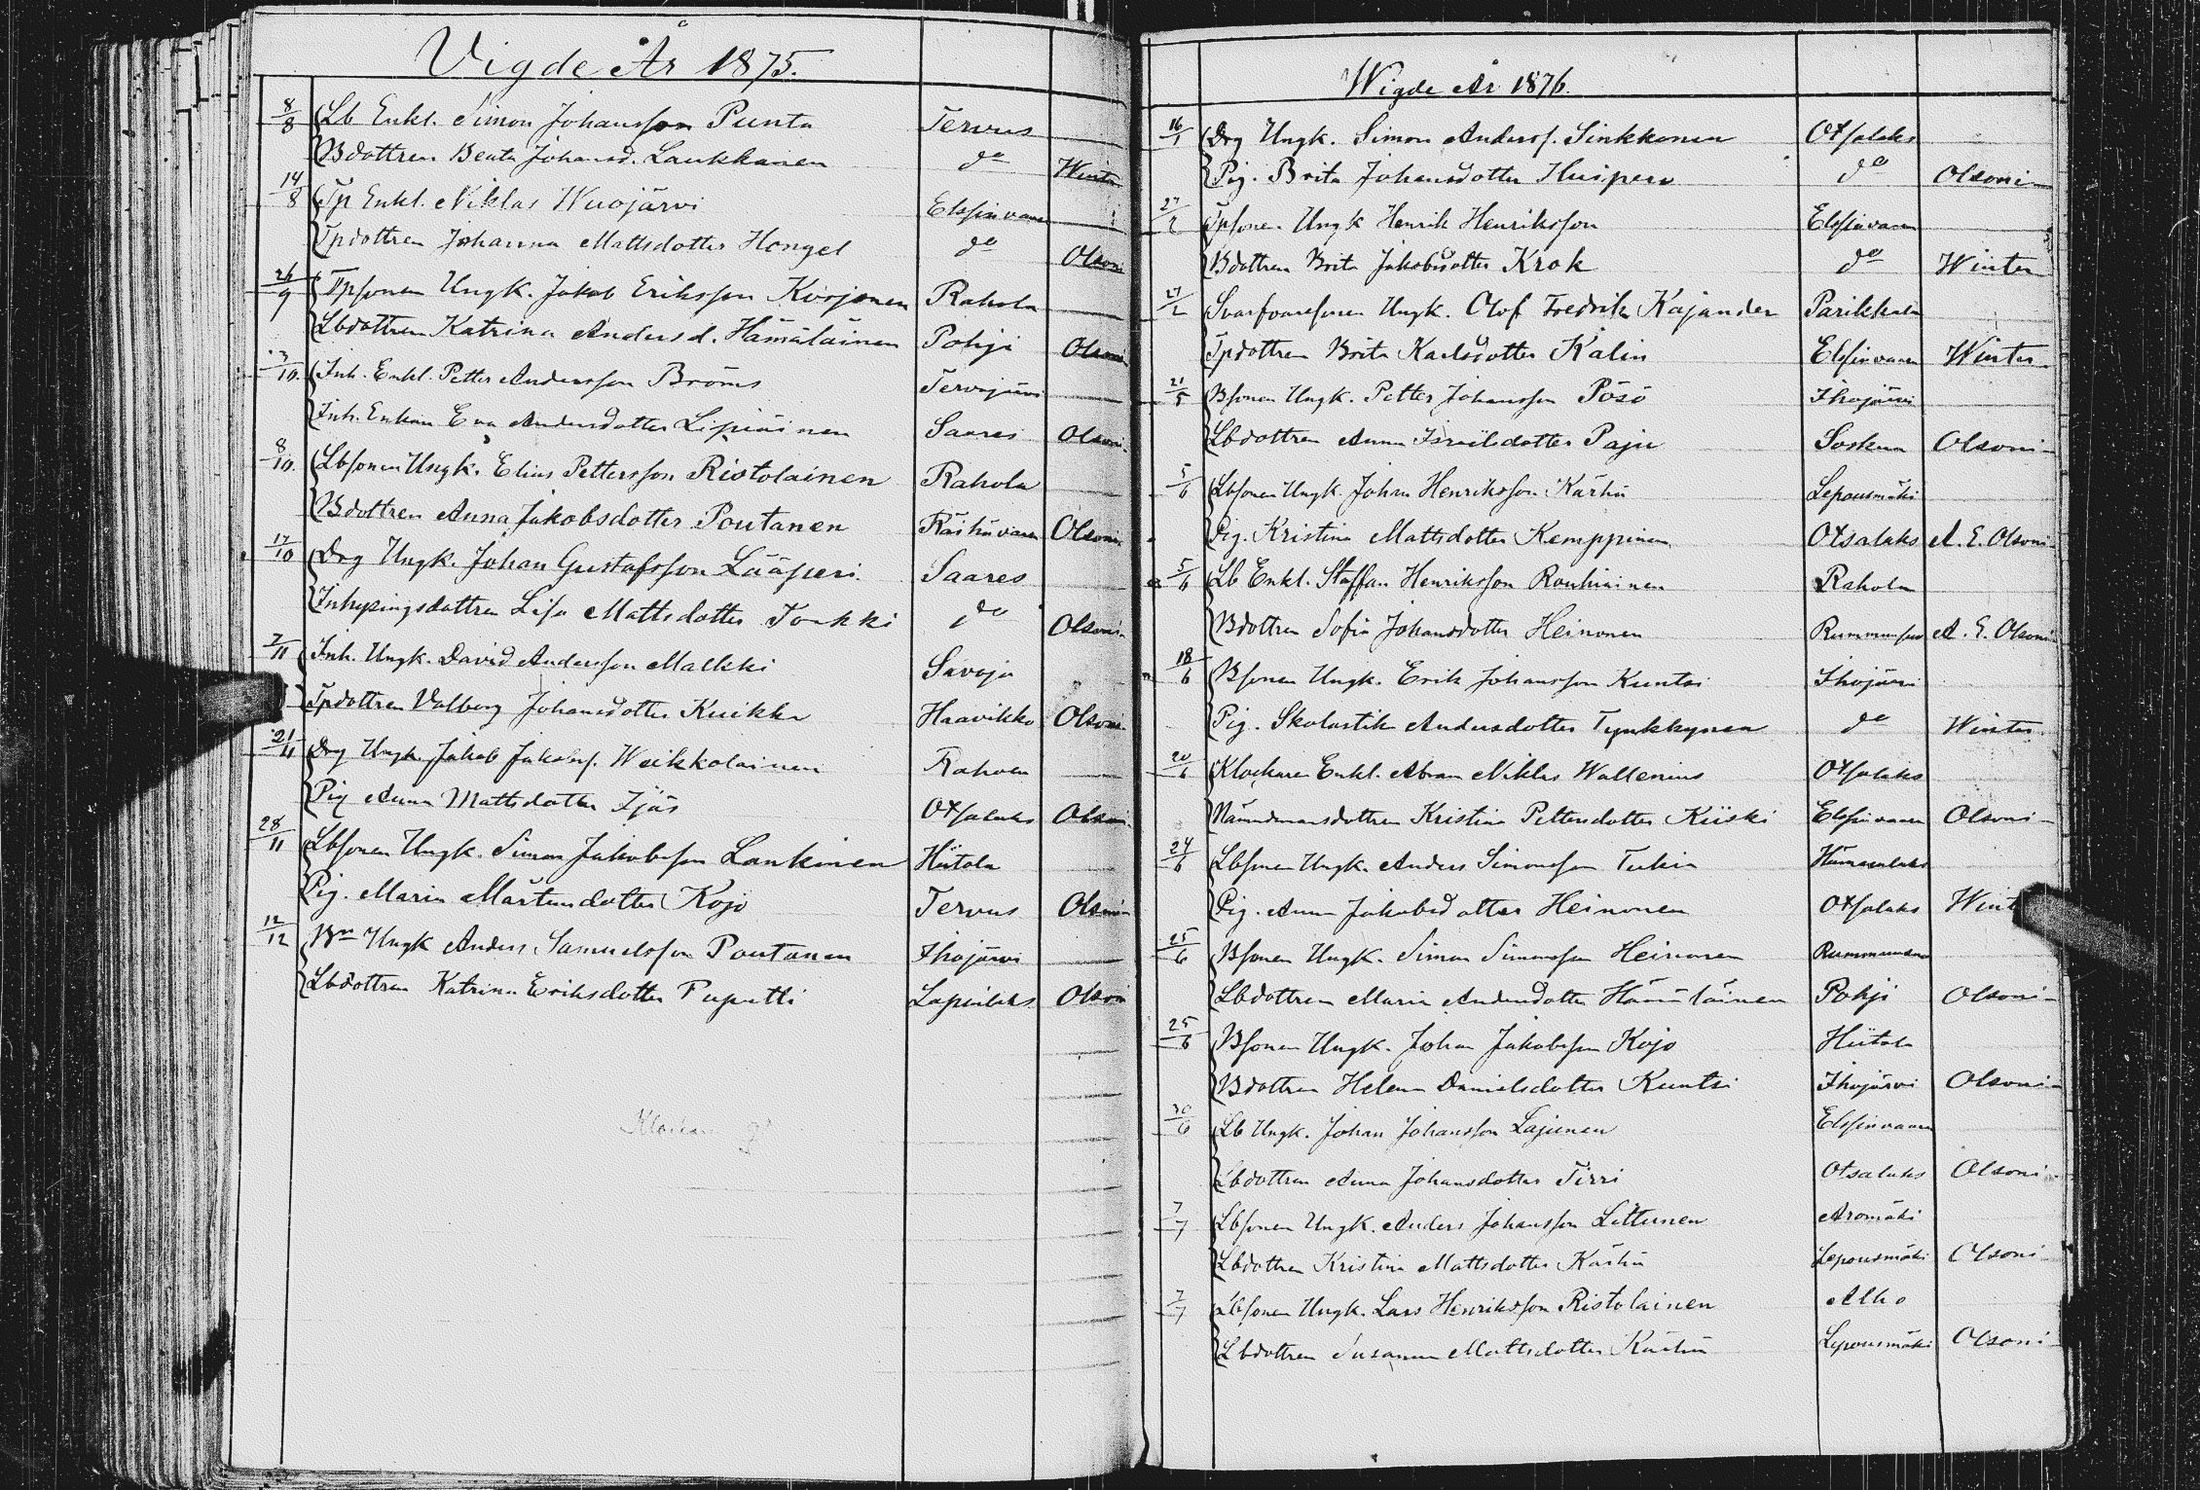 Vigde År 1875.
8/8 Lb Enkl. Simon Johansson Punta Tervus
Bdottren Beata Johansd. Laukkanen do Winter
14/8 Tp Enkl. Niklas Wuojärvi Elssinvaara
Tpdottren Johanna Mattsdotter Hongel do Olsoni
26/9 Tpsonen Ungk. Jakob Eriksson Korjonen Rahola
Lbdottren Katrina Andersd. Hämäläinen Pohji Olsoni
3/10. Inh. Enkl. Petter Andersson Broms Tervajärvi
Inh. Enkan Eva Andersdotter Lipiäinen Saares Olsoni.
8/10. Lbsonen Ungk. Elias Pettersson Ristolainen Rahola
Bdottren Anna Jakobsdotter Poutanen Räihävaara Olsoni
17/10 Drg Ungk. Johan Gustafsson Lääperi Saares
Inhysingsdottren Lisa Mattsdotter Torkki do Olsoni
7/11 Inh. Ungk. David Andersson Malkki Savojo
Tpdottren Valborg Johansdotter Kuikka Haavikko Olsoni
21/11 Drg Ungk. Jakob Jakobss. Weikkolainen Rahola
Pig Anna Mattsdotter Ijäs Otsalaks Olsoni.
28/11 Lbsonen Ungk. Simon Jakobsson Lankinen Hiitola
Pig. Maria Mårtensdotter Kojo Tervus Olsoni
12/12 Bn Ungk Anders Samuelsson Poutanen Ihojärvi
Lbdottren Katrina Eriksdotter Puputti Lapinlaks Olsoni
Wigde År 1876.
16/1 Drg Ungk. Simon Anderss. Sinkkonen Otsalaks
Pig. Brita Johansdotter Huisperi do Olsoni
27/2 Tpsonen Ungk Henrik Henriksson Elssinvaara
Bdottren Brita Jakobsdotter Krok do Winter
27/2 Svarfvaresonen Ungk. Olof Fredrik Kajander Parikkala
Tpdottren Brita Karlsdotter Kalin Elssinvaara Winter
21/5 Bsonen Ungk. Petter Johansson Pösö Ihojärvi
Lbdottren Anna Israelsdotter Paju Soskua Olsoni
5/6 Lbsonen Ungk. Johan Henriksson Kärhä Lepousmäki
Pig. Kristina Mattsdotter Kemppinen Otsalaks A. E. Olsoni
5/6 Lb Enkl. Staffan Henriksson Rouhiainen Rahola
Bdottren Sofia Johansdotter Heinonen A. E. Olsoni
18/6 Bsonen Ungk. Erik Johansson Kuntsi Ihojärvi
Pig. Skolastika Andersdotter Tynkkynen do Winter
20/6 Klockare Enkl. Abram Niklas Wallenius Otsalaks
Nämndmansdottren Kristina Pettersdotter Kiiski Elssinvaara Olsoni
24/6 Lbsonen Ungk. Anders Simonsson Tukia
Pig. Anna Jakobsdotter Heinonen Otsalaks Winter
25/6 Bsonen Ungk. Simon Simonsson Heinonen
Lbdottren Maria Andersdotter Hämäläinen Pohji Olsoni
25/6 Bsonen Ungk. Johan Jakobsson Kojo Hiitola
Bdottren Helena Danielsdotter Kuntsi Ihojärvi Olsoni
30/6 Lb Ungk. Johan Johansson Lajunen Elssinvaara
Lbdottren Anna Johansdotter Tirri Otsalaks Olsoni
7/7 Lbsonen Ungk. Anders Johansson Littunen Aromäki
Lbdottren Kristina Mattsdotter Kärhä Lepousmäki Olsoni
7/7 Lbsonen Ungk. Lars Henriksson Ristolainen Alho
Lbdottren Susanna Mattsdotter Kärhä Lepousmäki Olsoni